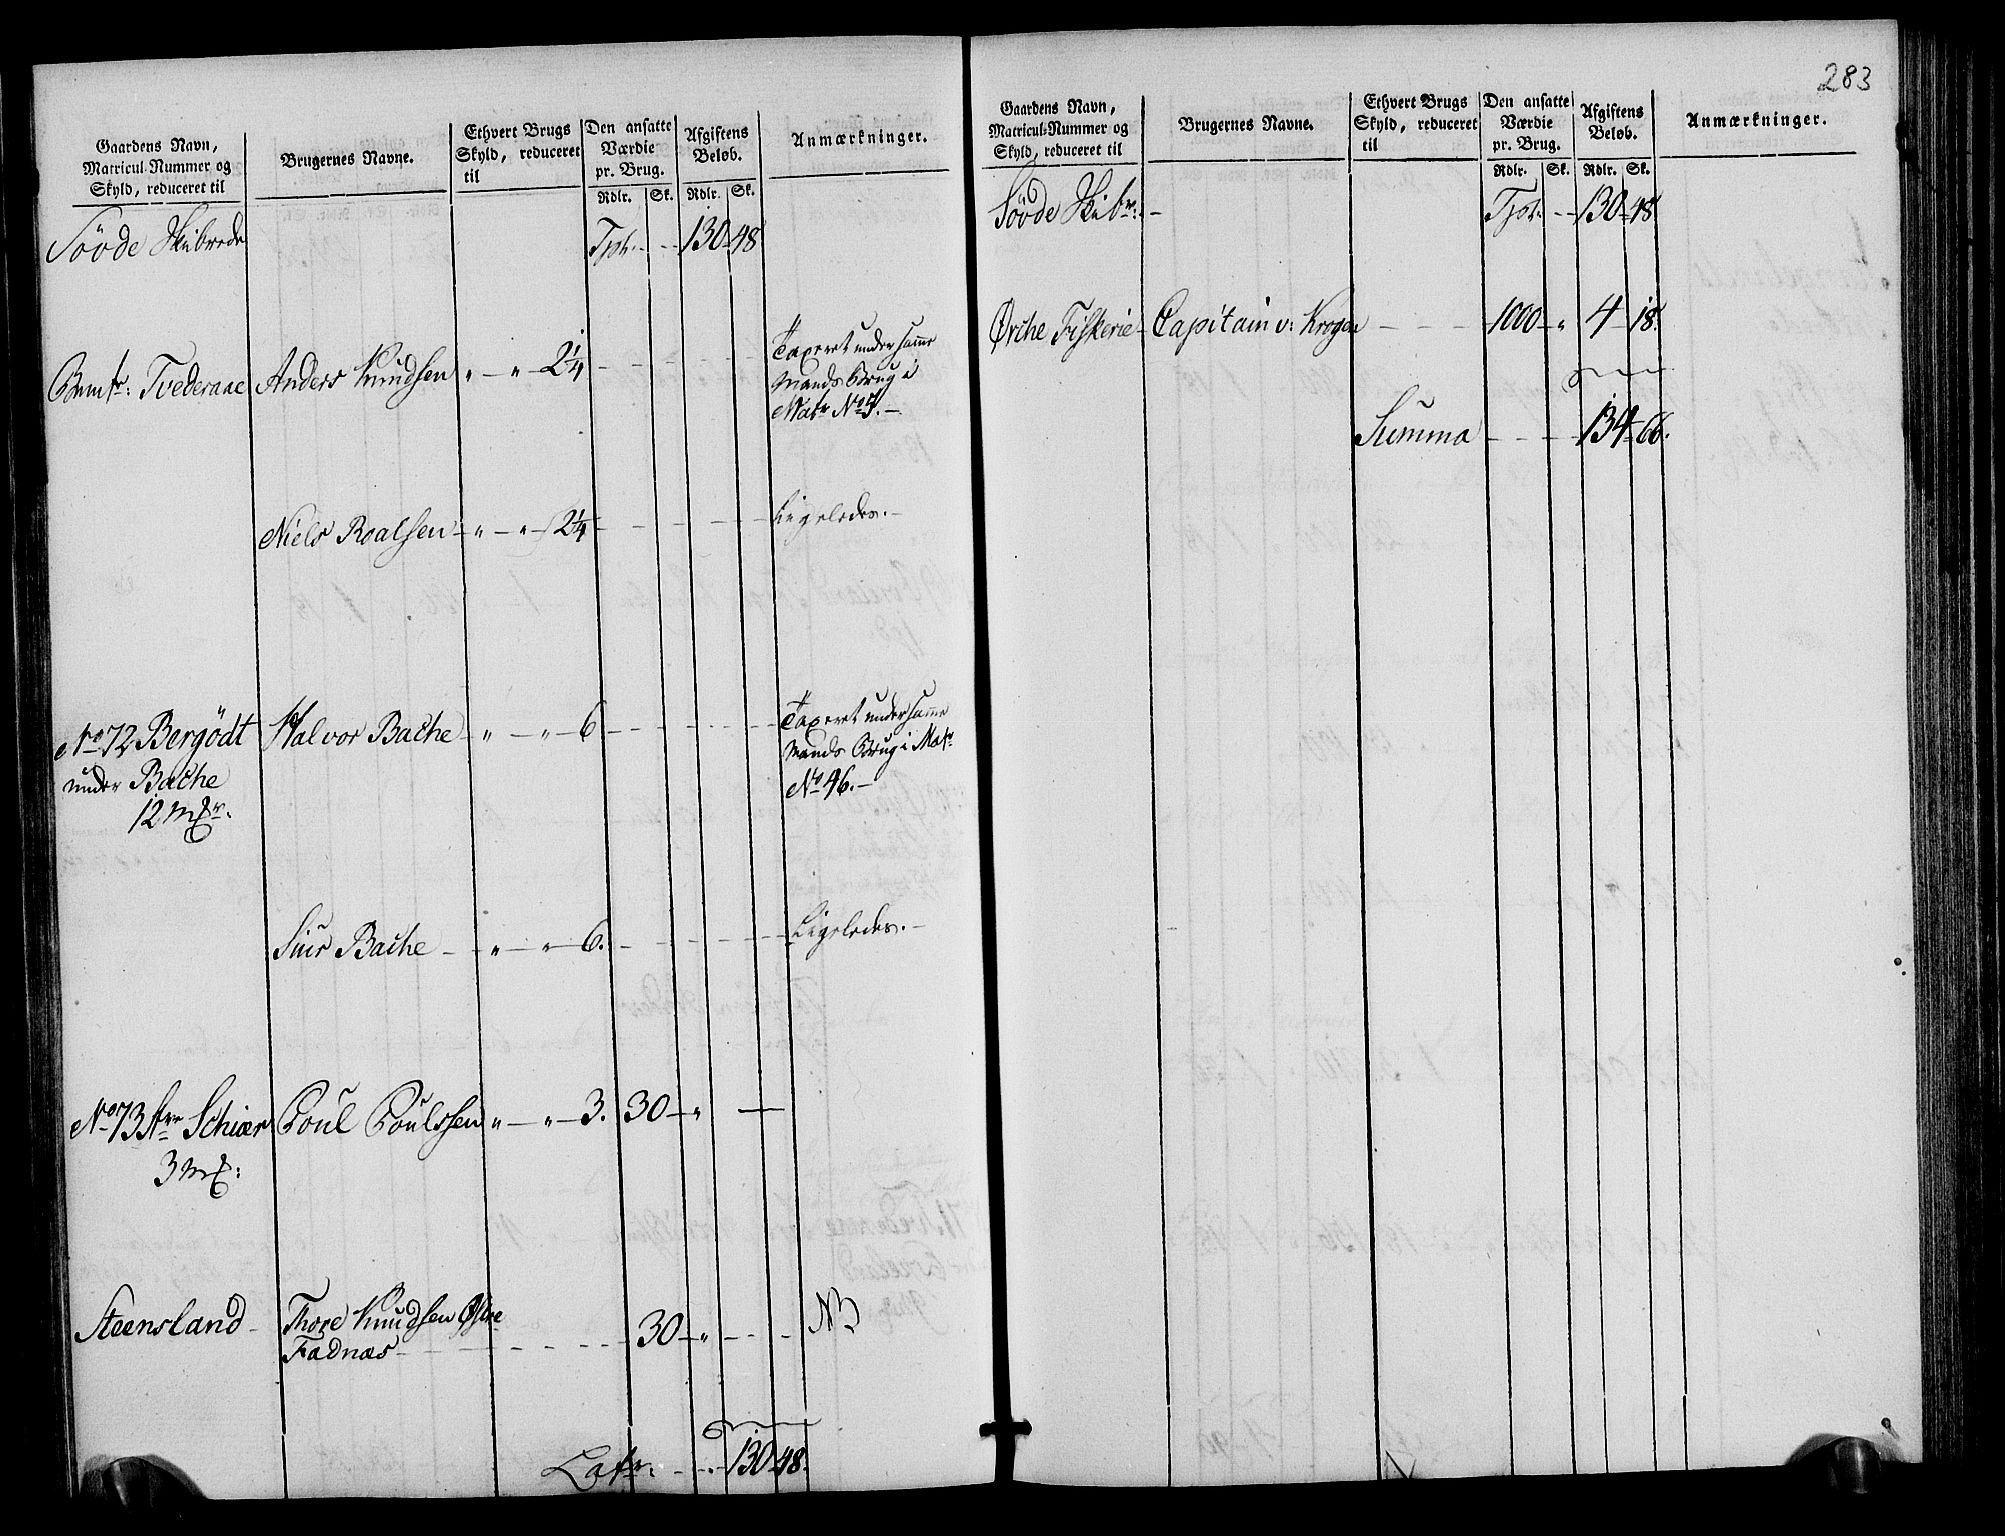 Gaardens Navn,
Matricul-Nummer og
Skyld, reduceret til
Brugernes Navne.
Ethvert Brugs
Skyld, reduceret
til
Den ansatte
Værdie
pr. Brug.
Rdlr. Sk.
Afgiftens
Beløb.
Rdlr. Sk.
Anmærkninger.
Sövde Skibrede Tpt: - - 130 - 48
Tvederaae Anders Knudsen " - " - 2¼ - - - - - Taxeret under samme
Mands Brug i
Matr No 5. -
Niels Roalsen - " - " - 2¼ - - - - - Ligeledes. -
No 72 Bergödt Halvor Bache - " - " - 6 - - - - - Taxeret under samme
under Bache Mands Brug i Matr
12 mkr. No 46. -
Siur Bache - " - " - 6. - - - - - Ligeledes. -
No 73 Schiær Poul Poulssen " - " - 3. 30 - " -
3 mk:
Steensland - Thore Knudsen Østre
Fadnæs - - - - - 30 - " - - - NB
Latr: - - 130 - 48.
283
Gaardens Navn,
Matricul-Nummer og
Skyld, reduceret til
Brugernes Navne.
Ethvert Brugs
Skyld, reduceret
til
Den ansatte
Værdie
pr. Brug.
Rdlr. Sk.
Afgiftens
Beløb.
Rdlr. Sk.
Anmærkninger.
Sövde Skibr: - Tpt: - - 130 - 48
Ørche Fiskerie - Capitain v: Krogen - - - 1000 - " 4 - 18.
Summa - - - 134 - 66.